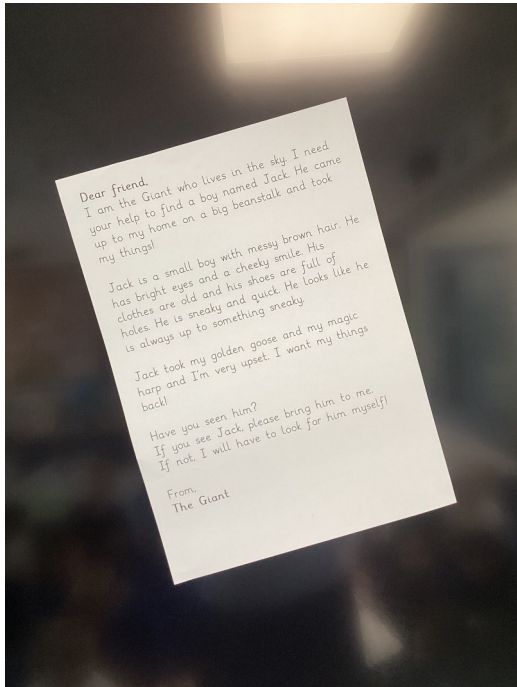 Dear friend,
I am the Giant who lives in the sky. I need
your help to find a boy named Jack. He came
up to my home on a big beanstalk and took
my things!
Jack is a small boy with messy brown hair. He
has bright eyes and a cheeky smile. His
clothes are old and his shoes are full of
holes. He is sneaky and quick. He looks like he
is always up to something sneaky.
Jack took my golden goose and my magic
harp and I'm very upset. I want my things
back!
Have you seen him?
If you see Jack, please bring him to me.
If not, I will have to look for him myself!
From,
The Giant